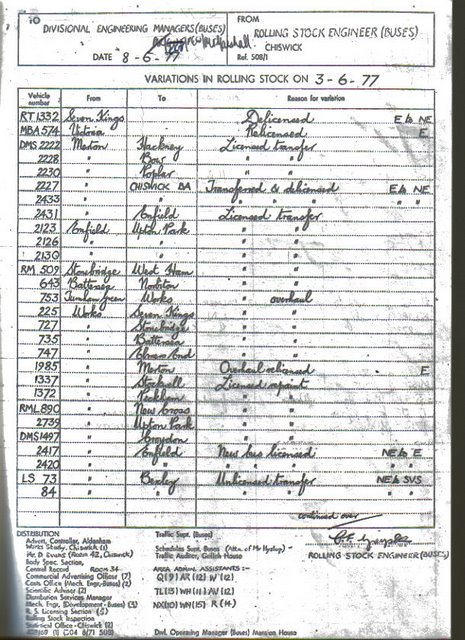 TO DIVISIONAL ENGINEERING MANAGERS (BUSES)
FROM ROLLING STOCK ENGINEER (BUSES)
CHISWICK
DATE 8-6-77
Ref. 508/1
VARIATIONS IN ROLLING STOCK ON 3-6-77
Vehicle number From To Reason for variation
RT1332 Seven Kings Delicensed E to NE
MBA574 Victoria Relicensed E
DMS2222 Merton Hackney Licensed transfer
2228 " Bow " "
2230 " Poplar " "
2227 " CHISWICK BA Transferred & delicensed E to NE
2433 " " " " " "
2431 " Enfield Licensed transfer
2123 Enfield Upton Park " "
2126 " " " "
2130 " " " "
RM 509 Stonebridge West Ham " "
643 Battersea Norbiton " "
753 Turnham Green Works " overhaul
225 Works Seven Kings " "
727 " Stonebridge " "
735 " Battersea " "
747 " Elmers End " "
1985 " Merton Overhaul relicensed E
1337 " Stockwell Licensed repaint
1372 " Peckham " "
RML890 " New Cross " "
2739 " Upton Park " "
DMS1497 " Croydon " "
2417 " Enfield New bus licensed NE to E
2420 " " " " " " "
LS 73 " Bexley Unlicensed transfer NE to SVS
84 " " " " "
continued over
ROLLING STOCK ENGINEER (BUSES)
DISTRIBUTION
Advert. Controller, Aldenham
Works Study, Chiswick (1)
Mr. D. Evans (Room 42, Chiswick)
Body Spec. Section,
Central Record Room 34
Commercial Advertising Officer (7)
Costs Office (Mech. Engr.-Buses) (2)
Scientific Adviser (2)
Distribution Services Manager
Mech. Engr. (Development-Buses) (3)
R. S. Licensing Section (5)
Rolling Stock Inspection
Statistical Office - Chiswick (2)
Traffic Supt. (Buses)
Schedules Supt. Buses (Attn. of Mr Hyslop)
Traffic Auditor, Griffith House
AREA ADMN. ASSISTANTS:-
Q(9) AR(12) W(12)
TL(13) WN(11) AV(12)
ND(10) WN(15) R(14)
Divl. Operating Manager (Buses) Mansion House